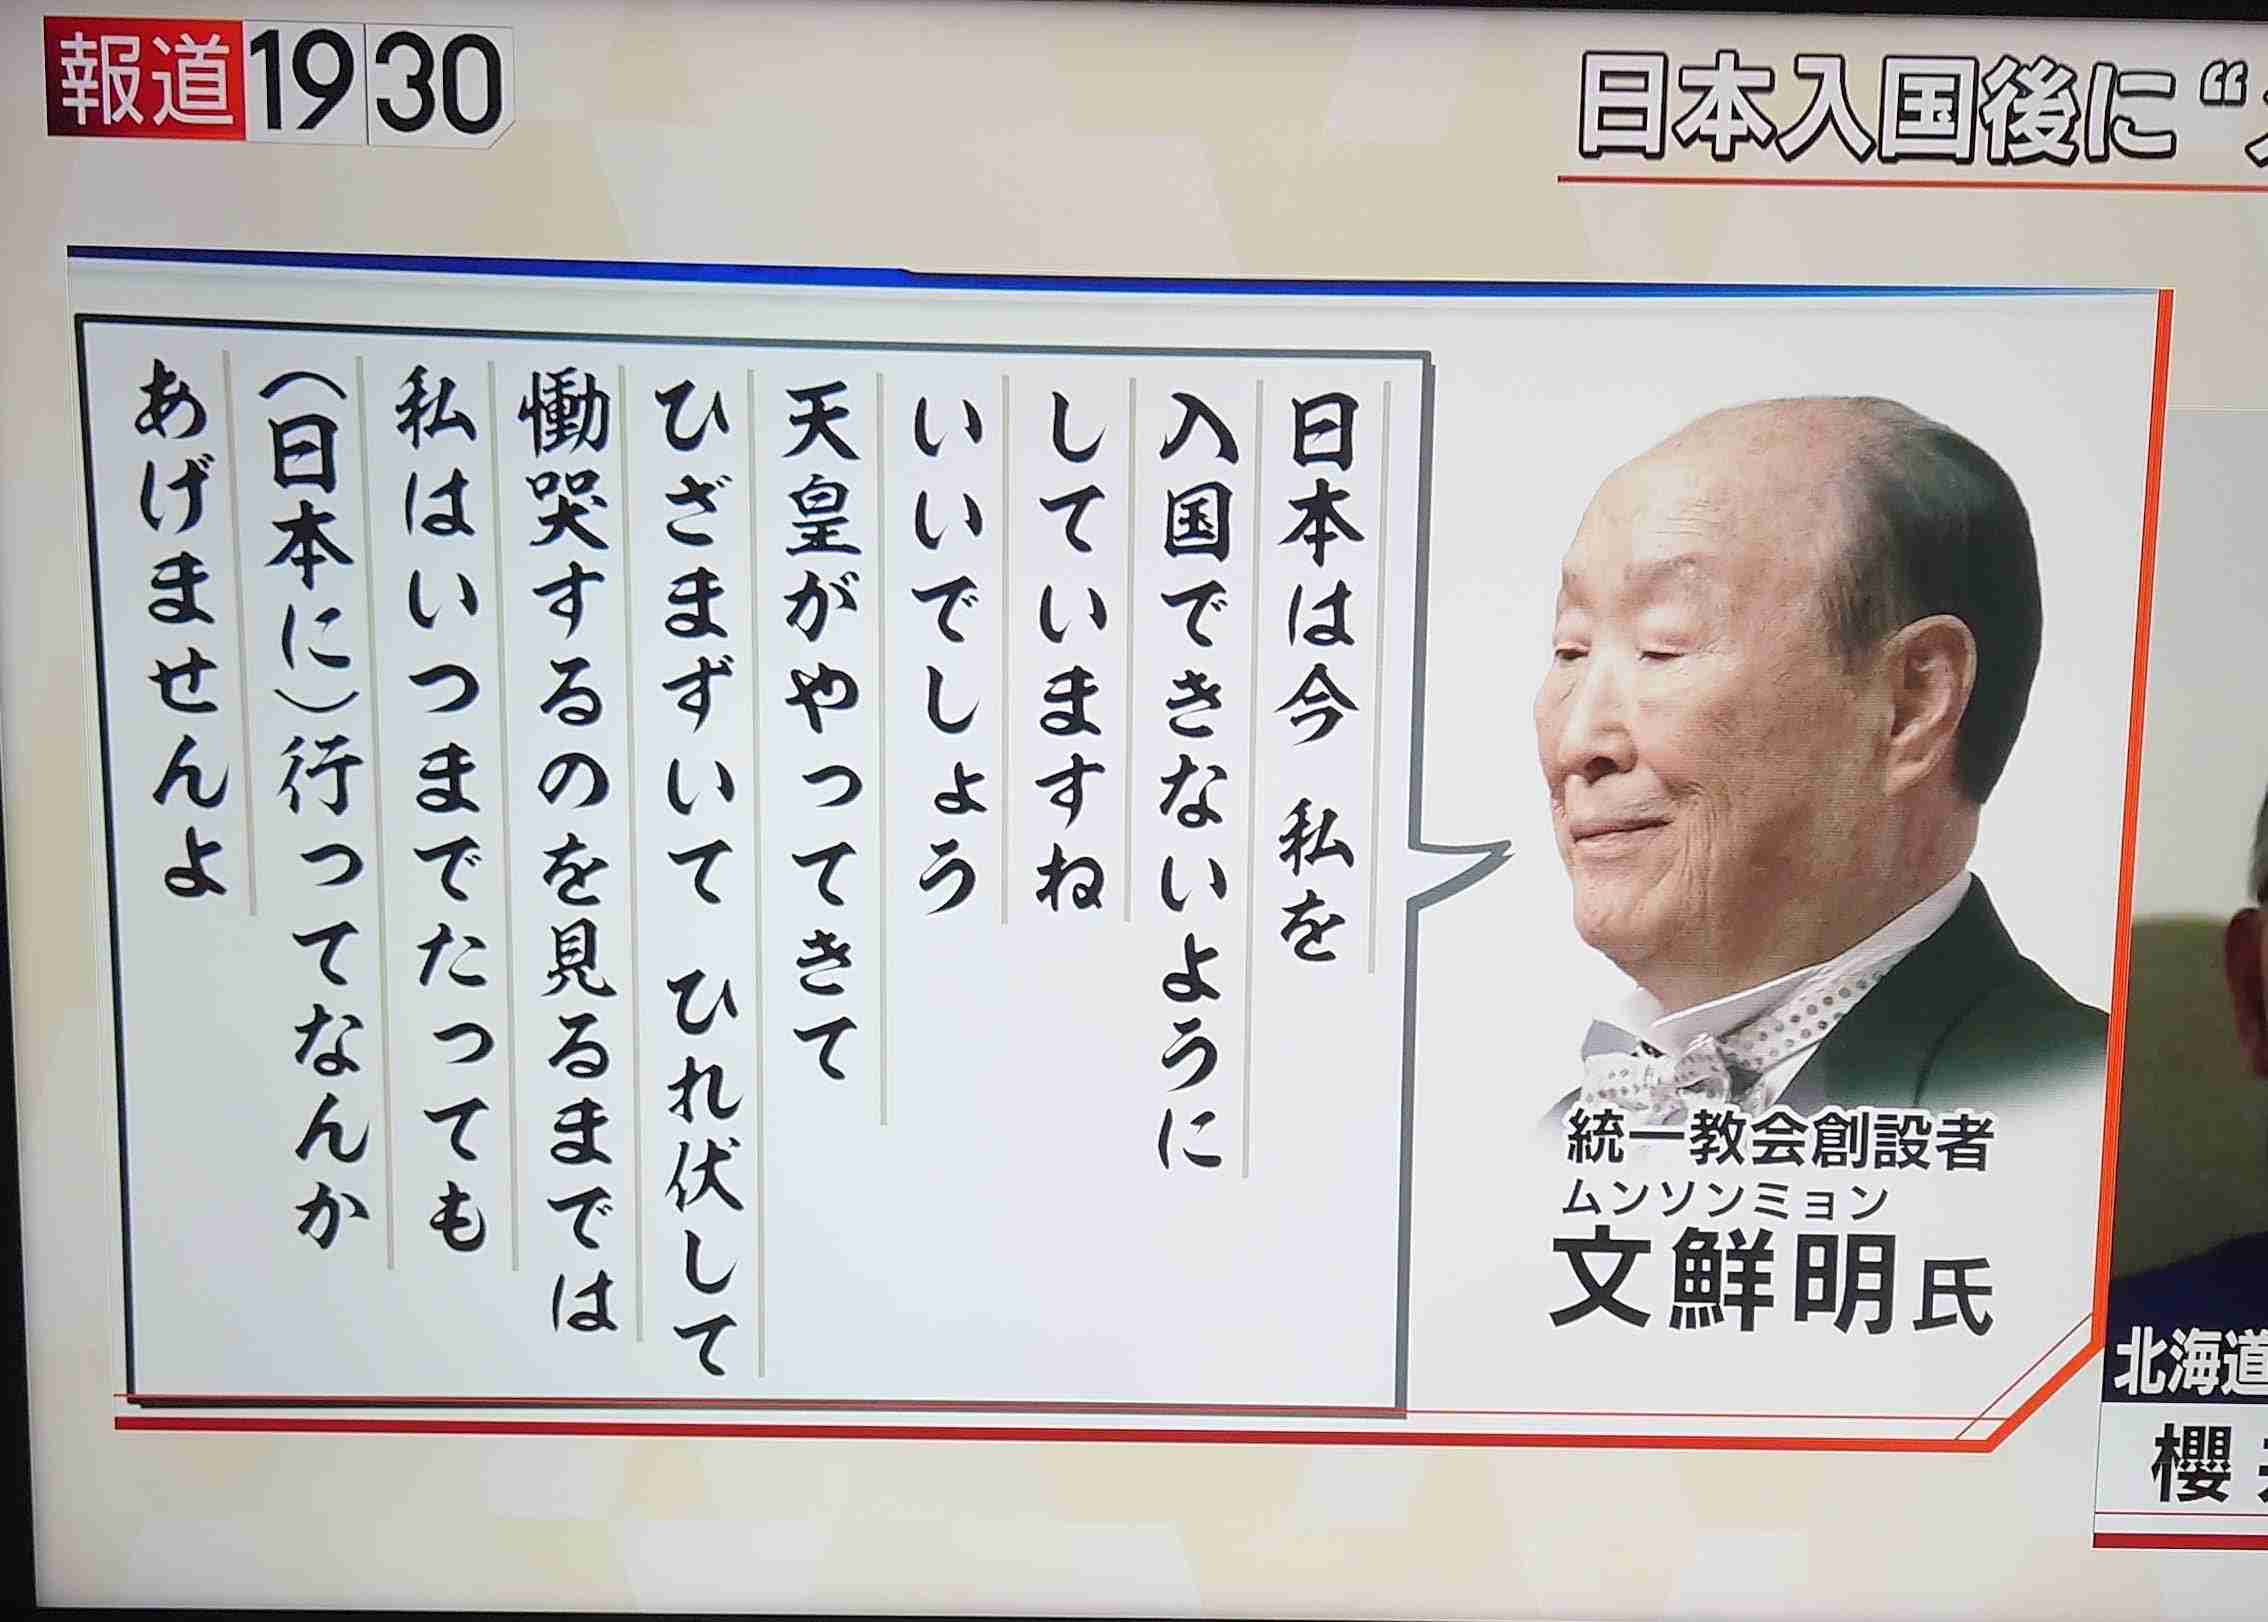 報道 19 30
日本入国後に“
日本は今 私を
入国できないように
していますね
いいでしょう
天皇がやってきて
ひざまずいて ひれ伏して
慟哭するのを見るまでは
私はいつまでたっても
（日本に）行ってなんか
あげませんよ
統一教会創設者
ムンソンミョン
文鮮明氏
北海道
櫻